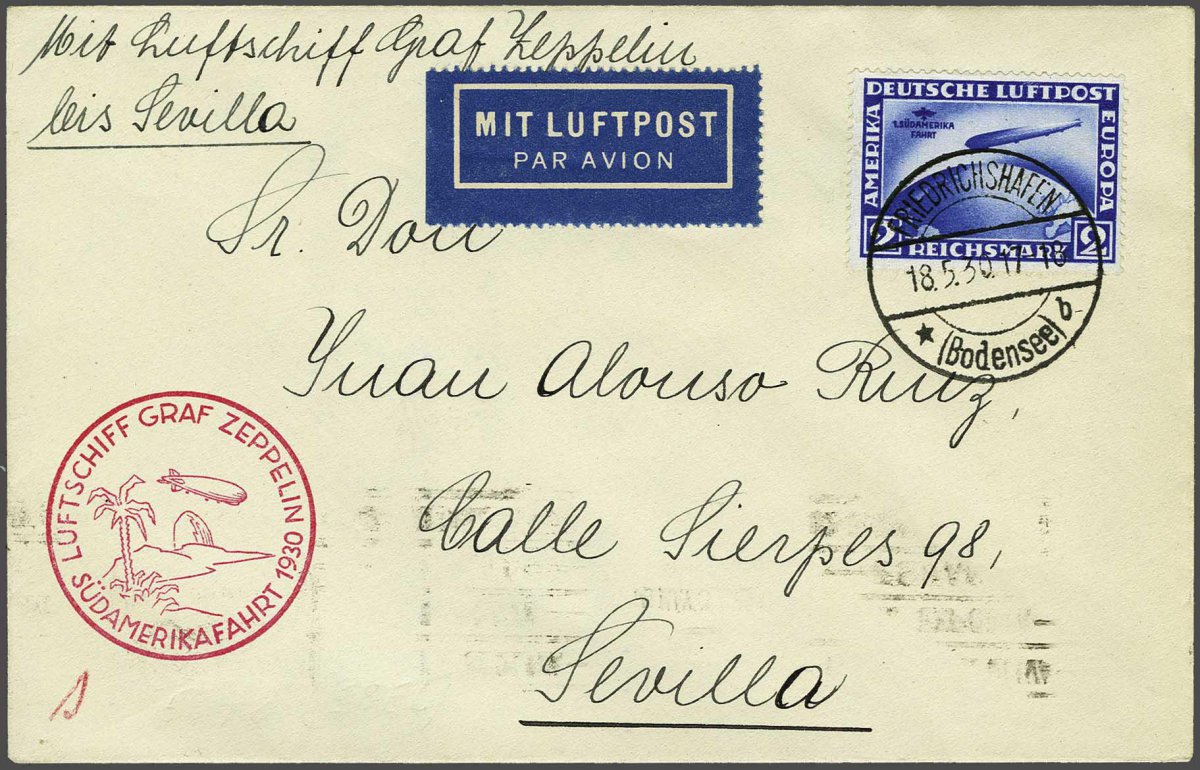 Mit Luftschiff Graf Zeppelin
bis Sevilla
MIT LUFTPOST
PAR AVION
DEUTSCHE LUFTPOST
AMERIKA
EUROPA
1. SÜDAMERIKA
FAHRT
2 REICHSMARK 2
FRIEDRICHSHAFEN
18.5.30.17-18
b
★ (Bodensee)
Sr. Don
Yuan Alonso Ruiz,
Calle Sierpes 98,
Sevilla
LUFTSCHIFF GRAF ZEPPELIN
SÜDAMERIKAFAHRT 1930